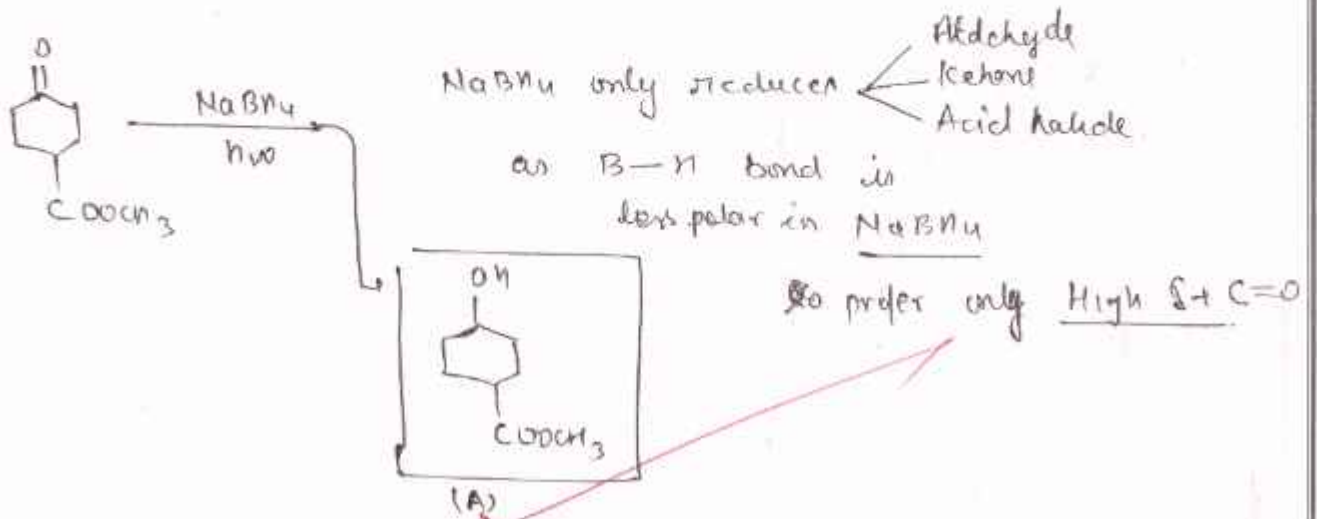 O
NaBH4
hv
COOCH3
NaBH4 only reduces
Aldehyde
Ketone
Acid halide
as B—H bond is
less polar in NaBH4
So prefer only High δ+ C=O
OH
COOCH3
(A)